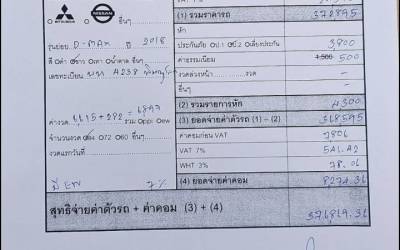 MITSUBISHI NISSAN อื่นๆ
(1) รวมราคารถ 372895
หัก
รุ่นย่อย D-MAX ปี 2018
ประกันภัย ป.1 ป.2 เลี่ยงประกัน 3,800
สี ดำ ขาว เทา น้ำตาล อื่นๆ
ค่าธรรมเนียม 1,500 500
เลขทะเบียน
งวดล่วงหน้า งวด -
อื่นๆ -
(2) รวมรายการหัก 4300
ค่างวด 6,615+282 = 6897 รวม
(3) ยอดจ่ายค่าตัวรถ (1) - (2) 368595
จำนวนงวด 84 72 60 อื่นๆ
ค่าคอมก่อน VAT 7806
งวดแรกวันที่
VAT 7% 546.42
WHT 3% 78.06
7%
(4) ยอดจ่ายค่าคอม 8274.36
สุทธิจ่ายค่าตัวรถ + ค่าคอม (3) + (4) 376869.36